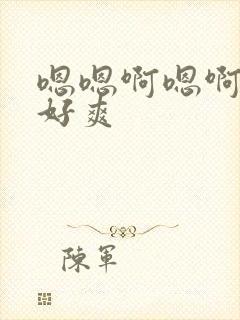 嗯嗯啊嗯啊
好爽
陳軍